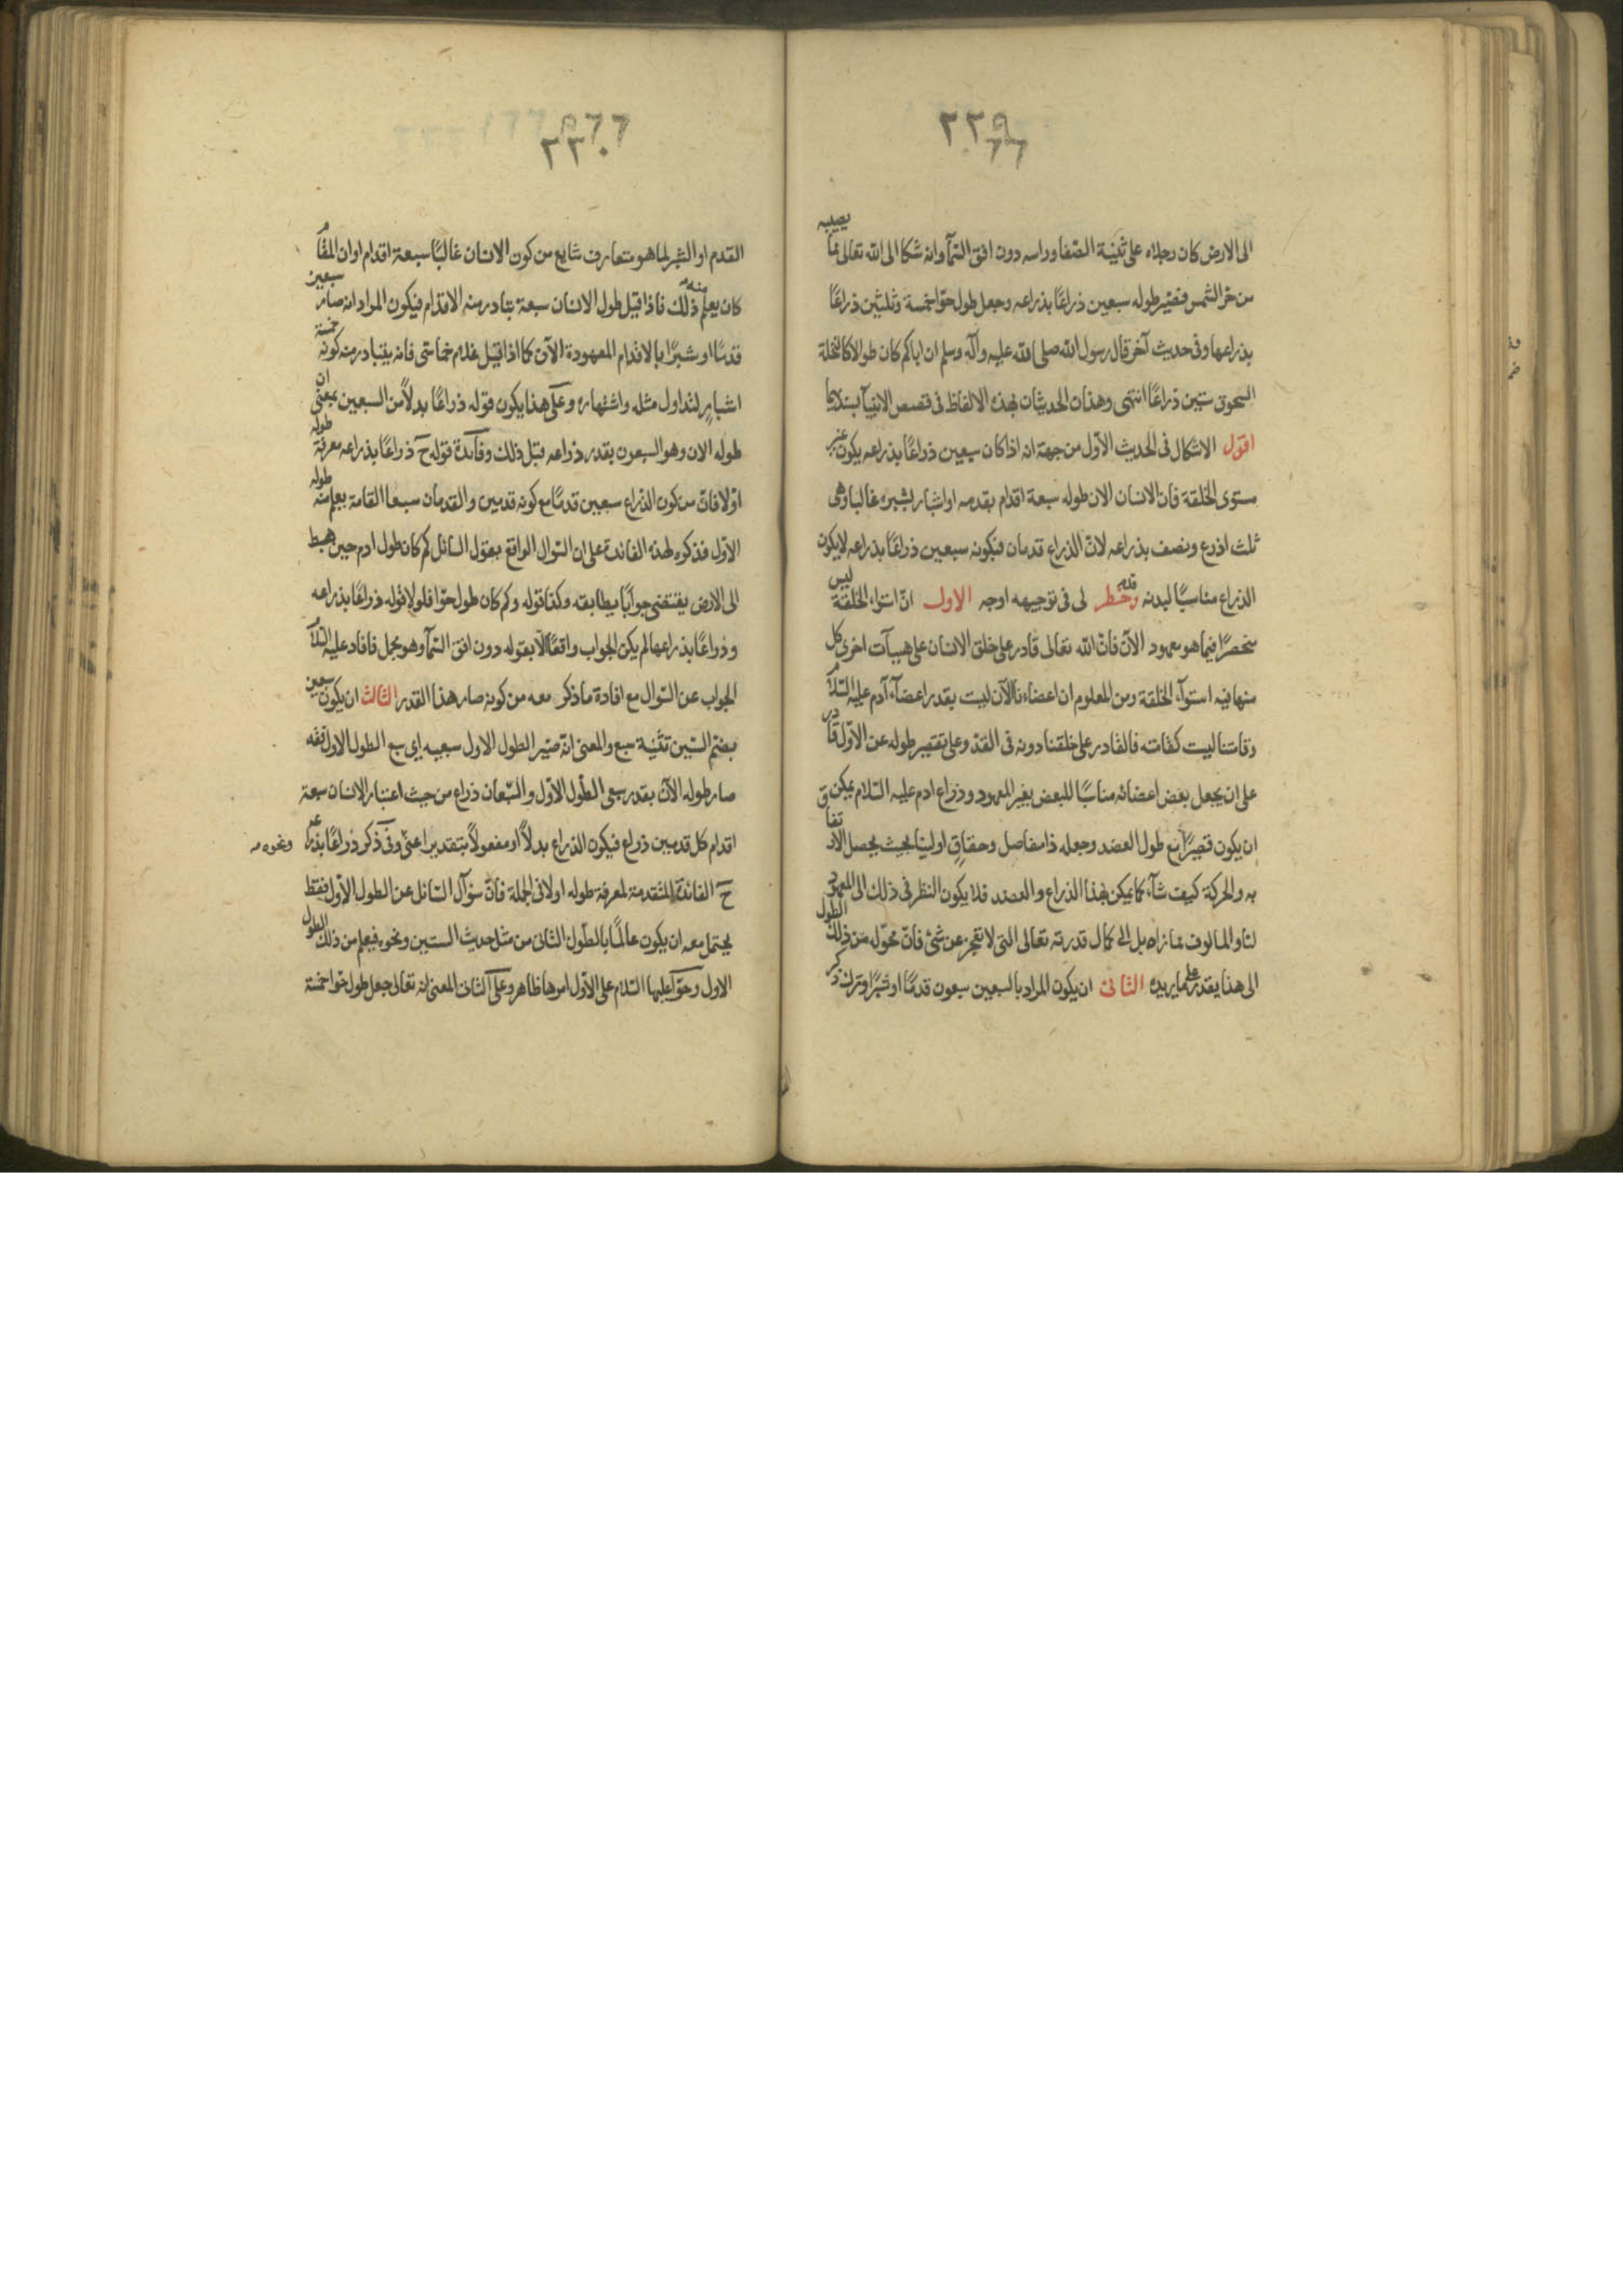 ٢٢٩
الى الارض كان رجلاه على ثنية الصّفا وراسه دون افق السّمآ وانه شكا الى الله تعالى ممّا يصيبه
من حرّ الشمس فصيّر طوله سبعين ذراعًا بذراعه وجعل طول حوّا خمسة وثلثين ذراعًا
بذراعها وفى حديث آخر قال رسول الله صلى الله عليه وآله وسلم ان اباكم كان طوالا كالنخلة
السحوق ستين ذراعًا انتهى وهذان الحديثان بهذه الالفاظ فى قصص الانبيآ بسندهما
اقول الاشكال فى الحديث الاوّل من جهة انه اذا كان سبعين ذراعًا بذراعه يكون غير
مستوى الخلقة فان الانسان الان طوله سبعة اقدام بقدمه او اشبار بشبره غالبا وهى
ثلث اذرع ونصف بذراعه لانّ الذراع قدمان فبكونه سبعين ذراعًا بذراعه لا يكون
الذراع مناسبًا لبدنه وخطر لى فى توجيهه اوجه الاول انّ استواء الخلقة ليس
منحصرًا فيما هو معهود الآن فانّ الله تعالى قادر على خلق الانسان على هيآت اخرى كل
منها فيه استوآء الخلقة ومن المعلوم ان اعضاءنا الآن ليست بقدر اعضآء آدم عليه السّلام
وقامتنا ليست كقامته فالقادر على خلقنا دونه فى القدّ وعلى تقصير طوله عن الاوّل قادر
على ان يجعل بعض اعضائه مناسبًا للبعض بغير المعهود وذراع ادم عليه السّلام يمكن
ان يكون قصيرًا مع طول العضد وجعله ذا مفاصل وحقاق اولينا بحيث يحصل الارتفاق
به والحركة كيف شآء كما يمكن بهذا الذراع والعضد فلا يكون النظر فى ذلك الى المعهود
لنا والمالوف مما نراه بل الى كمال قدرته تعالى التى لا تعجز عن شئ فانّ محوّله من ذلك الطول
الى هذا يقدر على ما يريده الثانى ان يكون المراد بالسبعين سبعون قدمًا او شبرًا وترك ذكر
٢٣٠
القدم او الشبر لما هو متعارف شايع من كون الانسان غالبًا سبعة اقدام او ان المقام
كان يعلم منه ذلك فاذا قيل طول الانسان سبعة تبادر منه الاقدام فيكون المراد انه صار سبعين
قدمًا او شبرًا بالاقدام المعهودة الآن كما اذا قيل غلام خماسّى فانه يتبادر منه كونه خمسة
اشبار لتداول مثله واشتهاره وعلى هذا يكون قوله ذراعًا بدلًا من السبعين بمعنى ان
طوله الان وهو السبعون بقدر ذراعه قبل ذلك وفآئدة قوله ح ذراعًا بذراعه معرفة طوله
اوّلا فانّ من كون الذراع سبعين قدمًا مع كونه قدمين والقدمان سبعا القامة يعلم منه طوله
الاوّل فذكره لهذه الفائدة على ان السّوال الواقع بقول السائل كم كان طول ادم حين هبط
الى الارض يقتضى جوابًا يطابقه وكذا قوله وكم كان طول حوّا فلولا قوله ذراعًا بذراعه
وذراعًا بذراعها لم يكن الجواب واقعًا الّا بقوله دون افق السّمآ وهو مجمل فافاد عليه السّلام
الجواب عن السّوال مع افادة ما ذكر معه من كونه صار هذا القدر الثالث ان يكون سبعين
بضمّ السّين تثنية سبع والمعنى انّه صيّر الطول الاول سبعيه اى سبع الطول الاول
صار طوله الآن بقدر سبعى الطّول الاوّل والسّبعان ذراع من حيث اعتبار الانسان سبعة
اقدام كل قدمين ذراع فيكون الذراع بدلًا او مفعولًا بتقدير اعنى وفى ذكر ذراعًا بذراعه ونحوه
ح الفائدة المتقدمة لمعرفة طوله اولا فى الجملة فانّ سؤآل السّائل عن الطول الاوّل فقط
يحتمل معه ان يكون عالمًا بالطّول الثانى من مثل حديث الستين ونحوه فيعلم من ذلك الطول
الاول وحوّآ عليها السّلام على الاوّل امرها ظاهر وعلى الثانى المعنى انه تعالى جعل طول حوّا خمسة